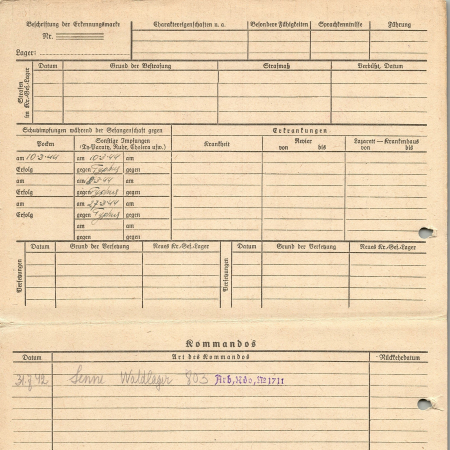 Beschriftung der Erkennungsmarke
Nr.
Lager:
Charaktereigenschaften u. a.
Besondere Fähigkeiten
Sprachkenntnisse
Führung
Strafen im Kr.-Gef.-Lager
Datum
Grund der Bestrafung
Strafmaß
Verbüßt, Datum
Schutzimpfungen während der Gefangenschaft gegen
Erkrankungen
Pocken
Sonstige Impfungen
(Ty.-Paraty., Ruhr, Cholera usw.)
Krankheit
Revier
von bis
Lazarett — Krankenhaus
von bis
am 10·3·44 am 10·3·44 am
Erfolg gegen Typhus gegen
am am 18·3·44 am
Erfolg gegen Typhus gegen
am am 27·3·44 am
Erfolg gegen Typhus gegen
am am
gegen gegen
Versetzungen
Datum
Grund der Versetzung
Neues Kr.-Gef.-Lager
Versetzungen
Datum
Grund der Versetzung
Neues Kr.-Gef.-Lager
Kommandos
Datum
Art des Kommandos
Rückkehrdatum
Senne Waldlager 803 Arb. Kdo. No 1711